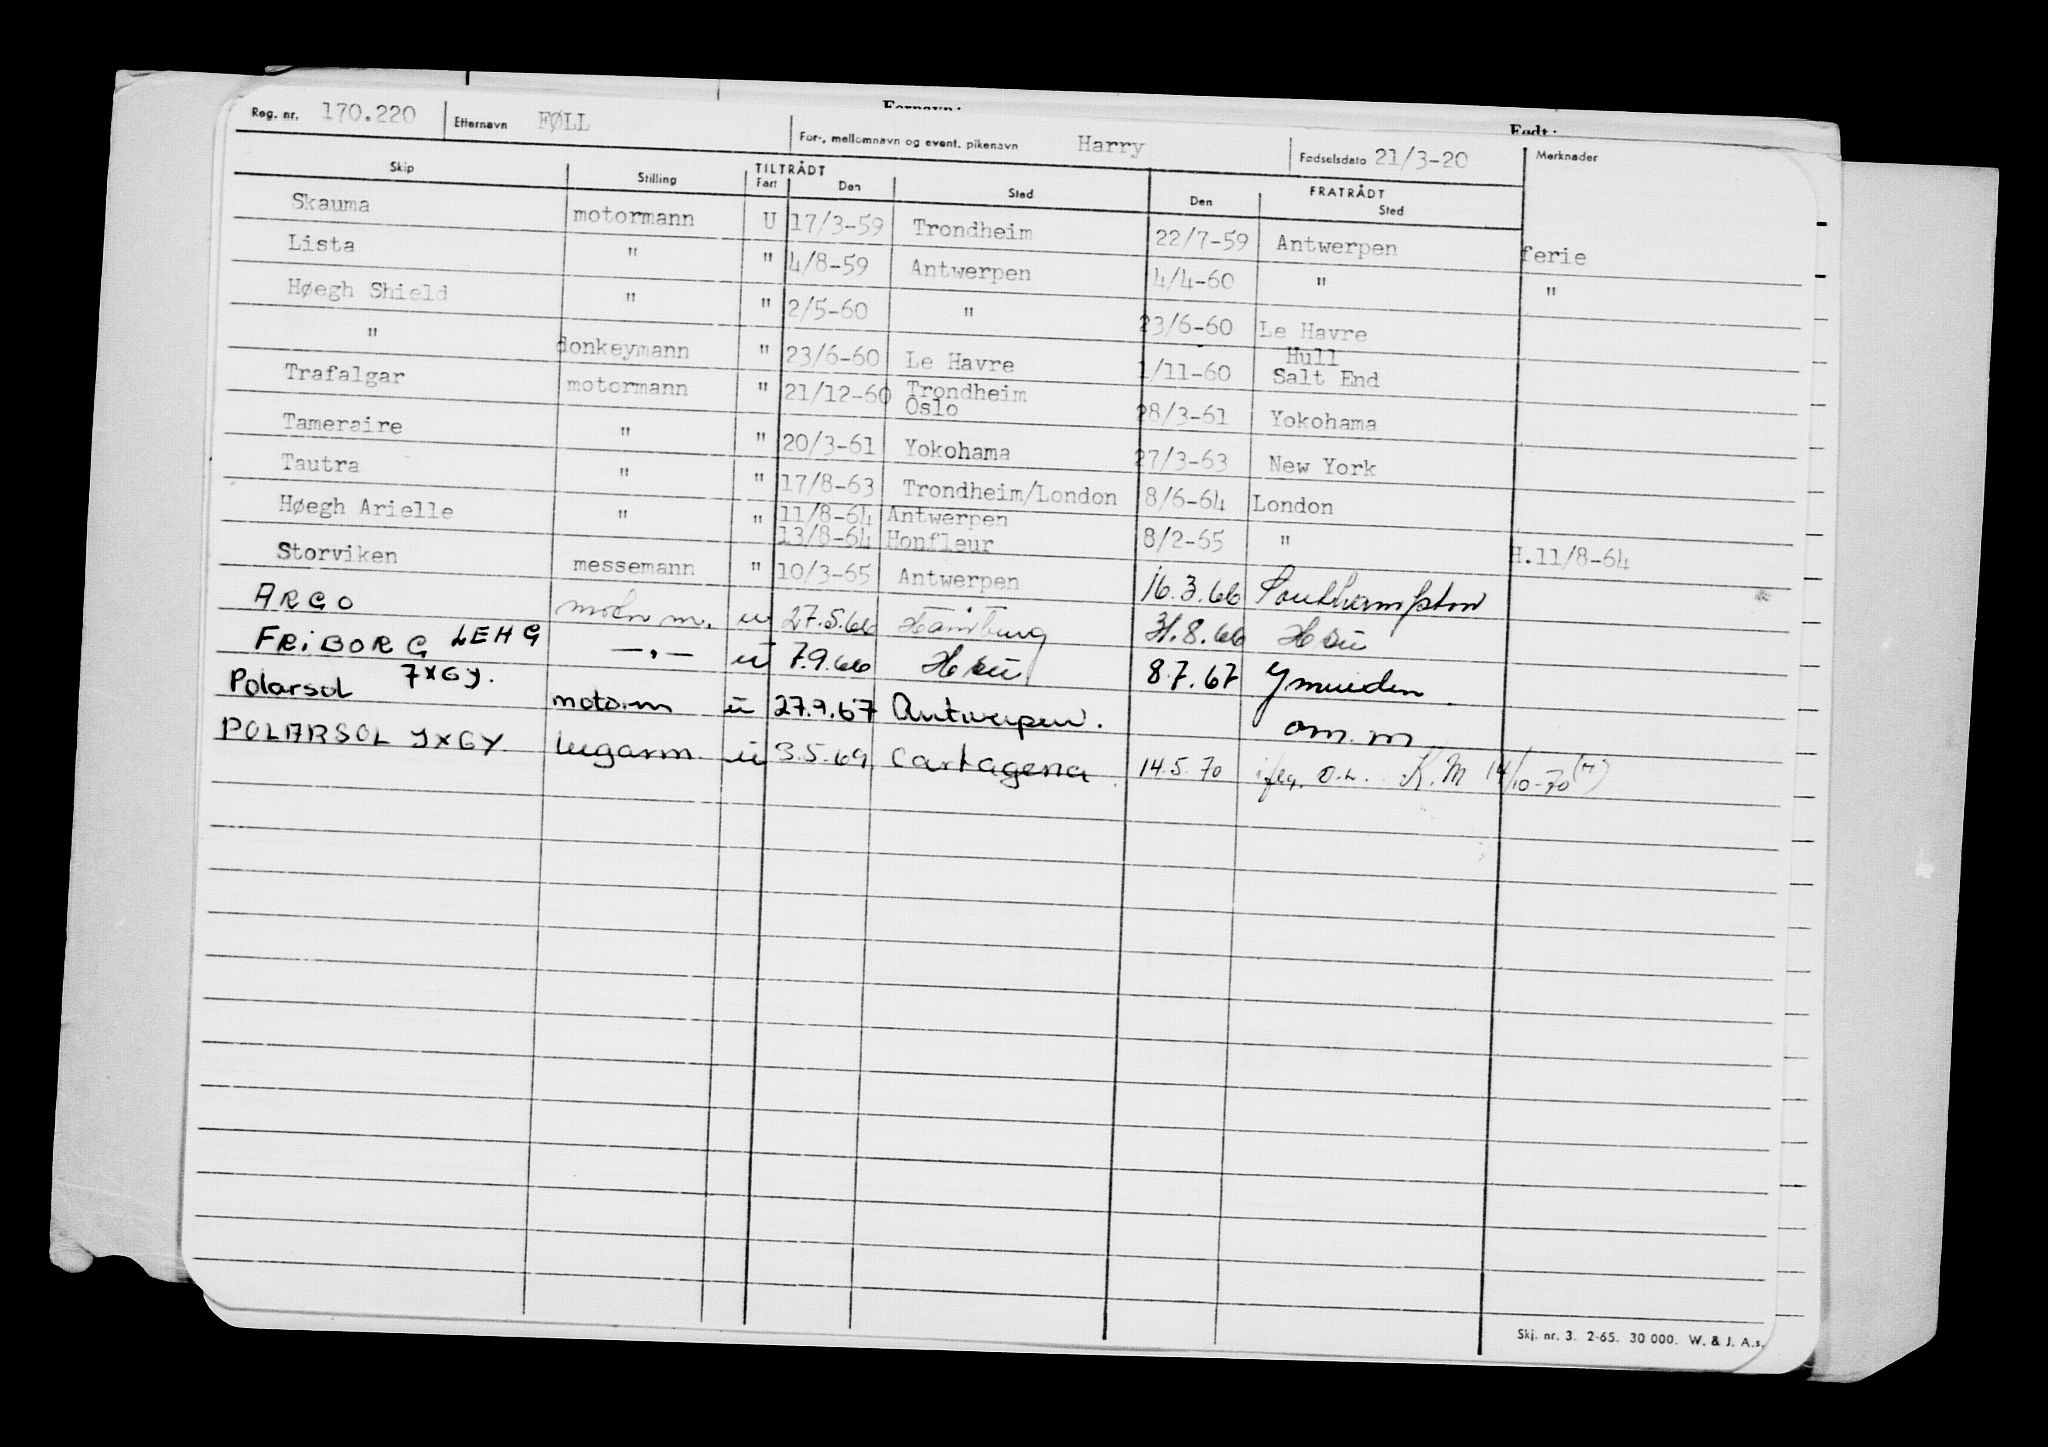 Reg. nr. 170.220 Etternavn FØLL For-, mellomnavn og event. pikenavn Harry Fødselsdato 21/3-20 Merknader
Skip Stilling TILTRÅDT Fart Den Sted FRATRÅDT Den Sted
Skauma motormann U 17/3-59 Trondheim 22/7-59 Antwerpen ferie
Lista " " 4/8-59 Antwerpen 4/4-60 " "
Høegh Shield " " 2/5-60 " 23/6-60 Le Havre
" donkeymann " 23/6-60 Le Havre 1/11-60 Hull Salt End
Trafalgar motormann " 21/12-60 Trondheim Oslo 28/3-61 Yokohama
Tameraire " " 20/3-61 Yokohama 27/3-63 New York
Tautra " " 17/8-63 Trondheim/London 8/6-64 London
Høegh Arielle " " 11/8-64 Antwerpen
13/8-64 Honfleur 8/2-65 " H.11/8-64
Storviken messemann " 10/3-65 Antwerpen 16.3.66 Southampton
ARGO u 27.5.66 Hamburg 31.8.66
FRiBORG LEHG —"— u 7.9.66 8.7.67 Ymuiden
Polarsol 7XGY. motorm u 27.9.67 Antwerpen. om. m
POLARSOL JXGY. lugarm. u 3.5.69 Cartagena 14.5.70 K.M 14/10-70 (M)
Skj. nr. 3. 2-65. 30 000. W. & J. A.s.